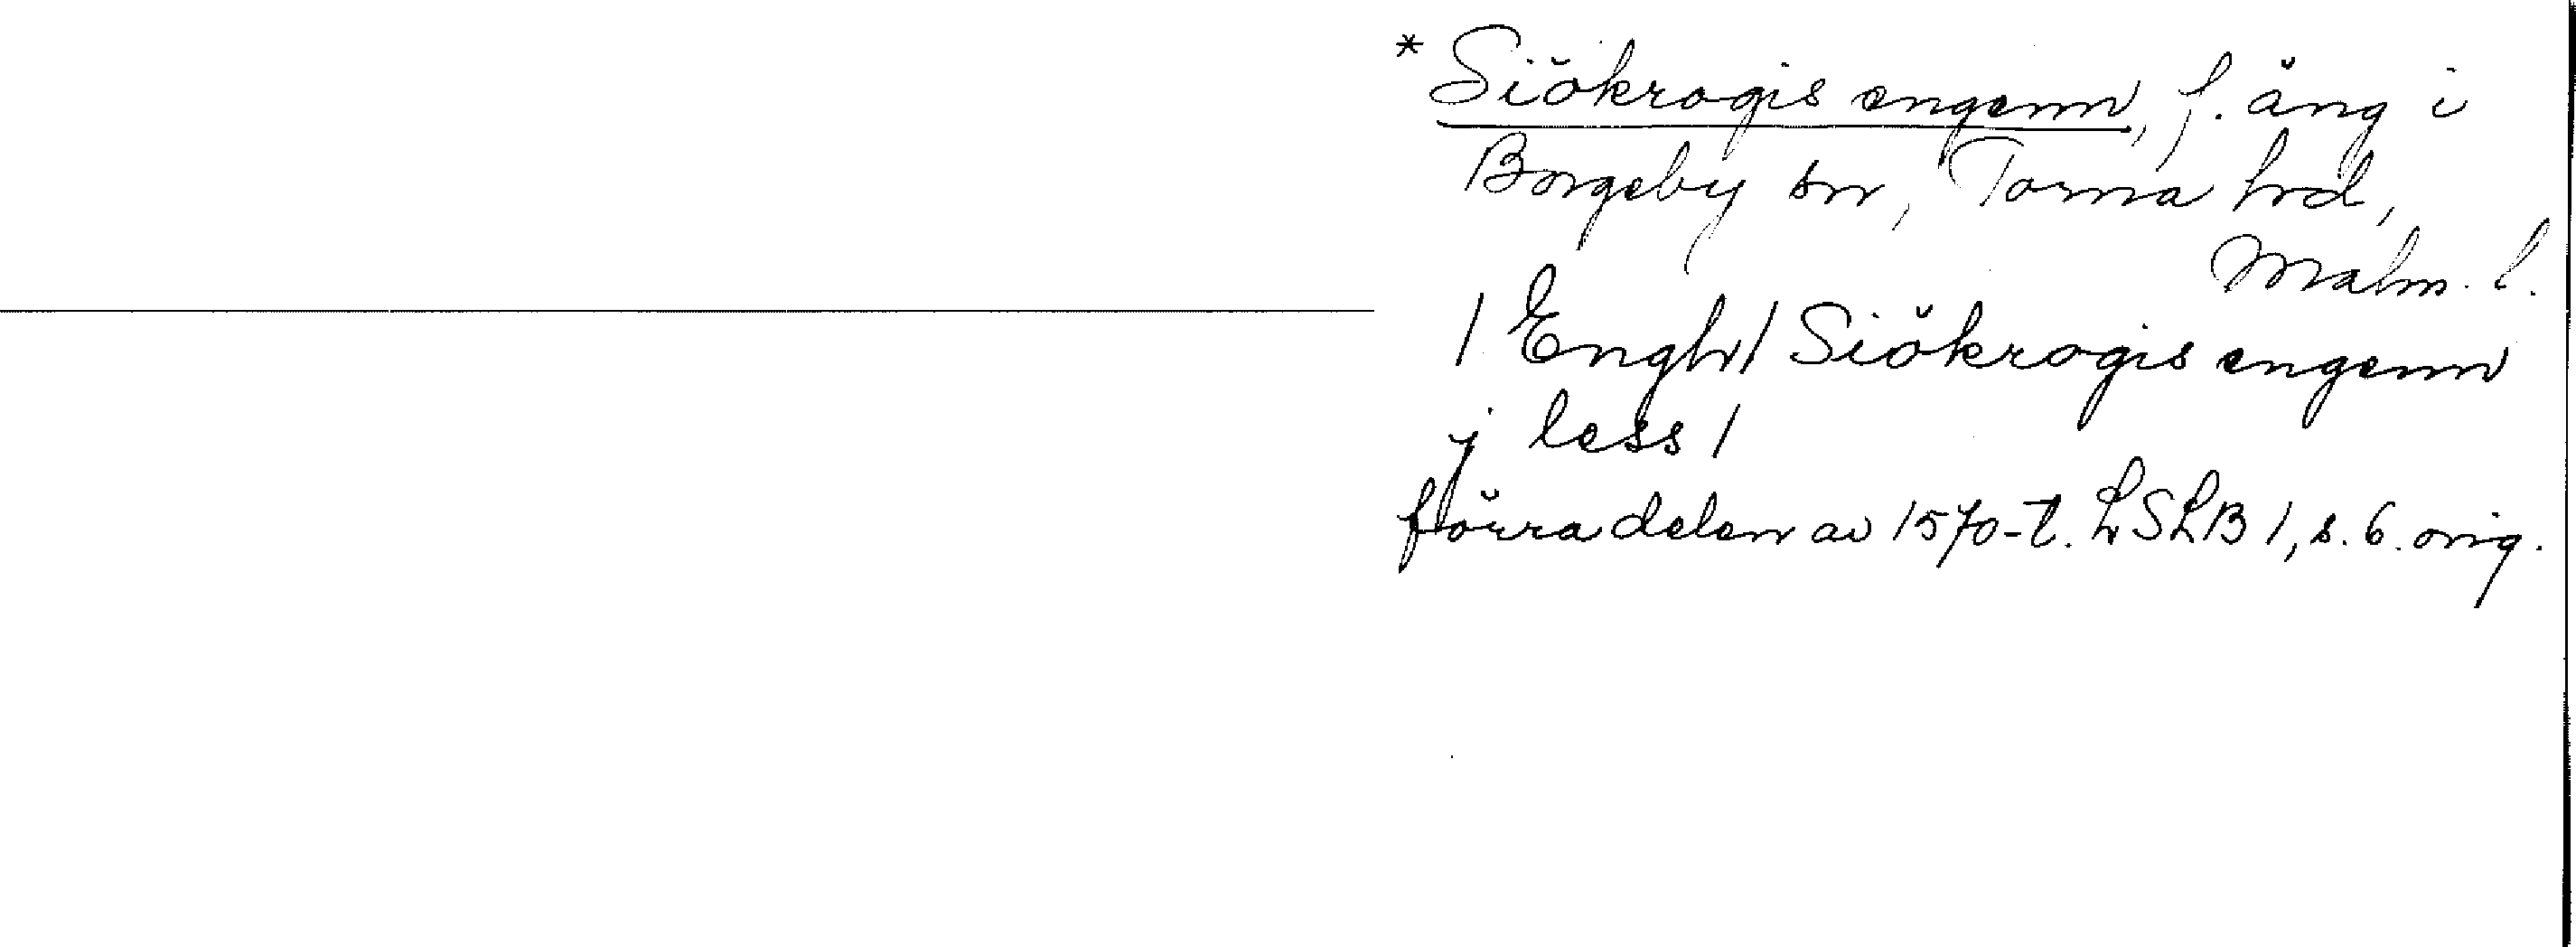 * Siökrogis engenn, f. äng i
Borgeby sn, Torna hd,
Malm. l.
/ Engh / Siökrogis engenn
j less /
förra delen av 1570-t. LSLB 1, s. 6. orig.